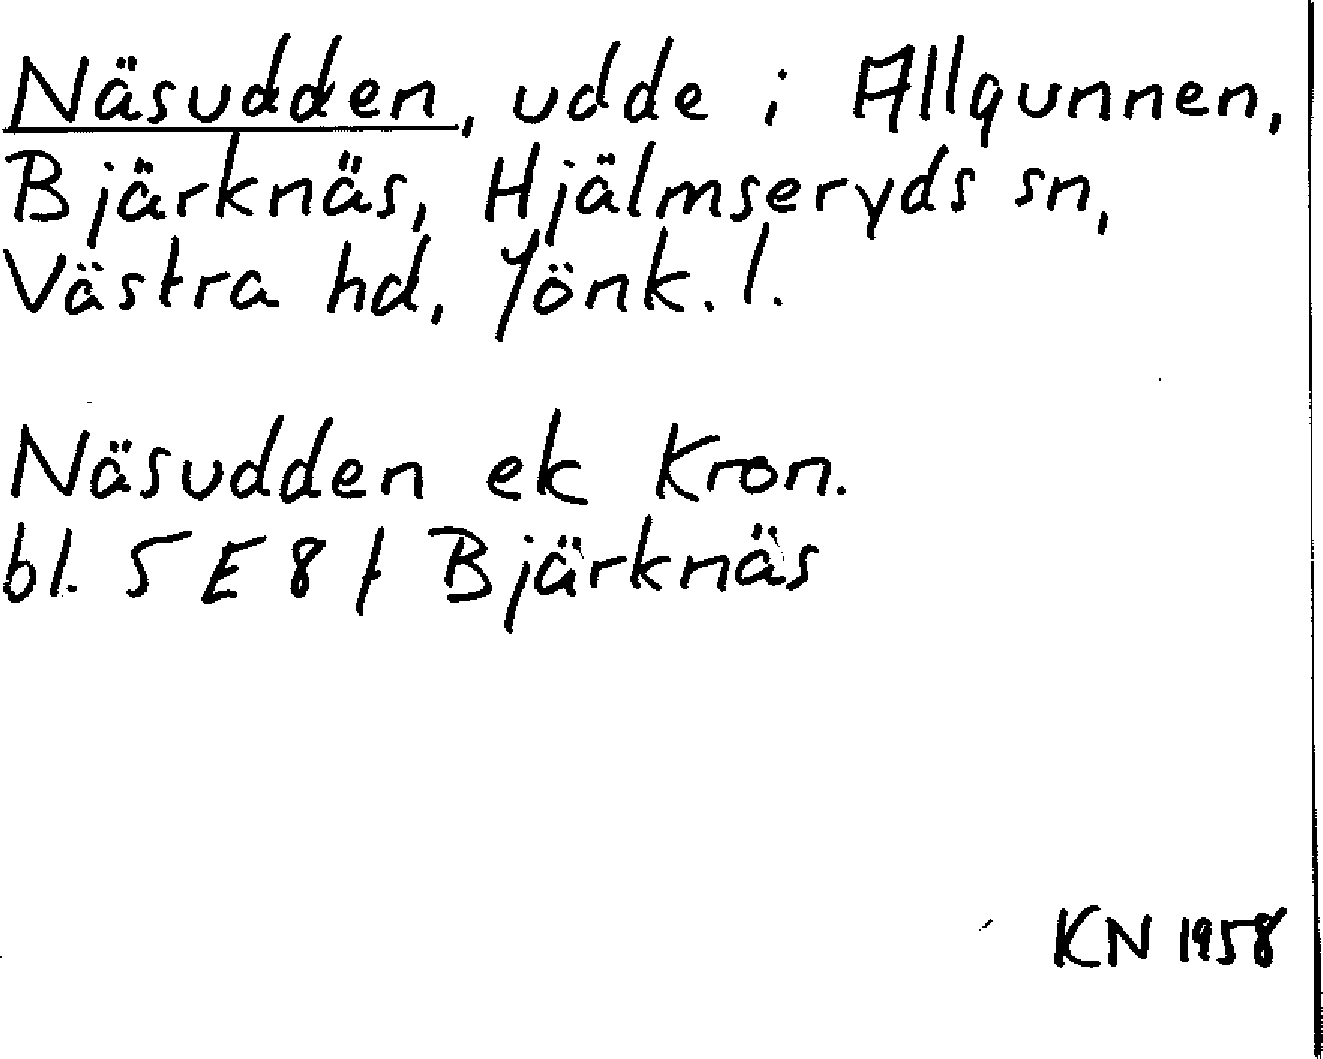 Näsudden, udde i Allgunnen,
Bjärknäs, Hjälmseryds sn,
Västra hd, Jönk. l.
Näsudden ek Kron.
bl. 5 E 8 f Bjärknäs
KN 1958